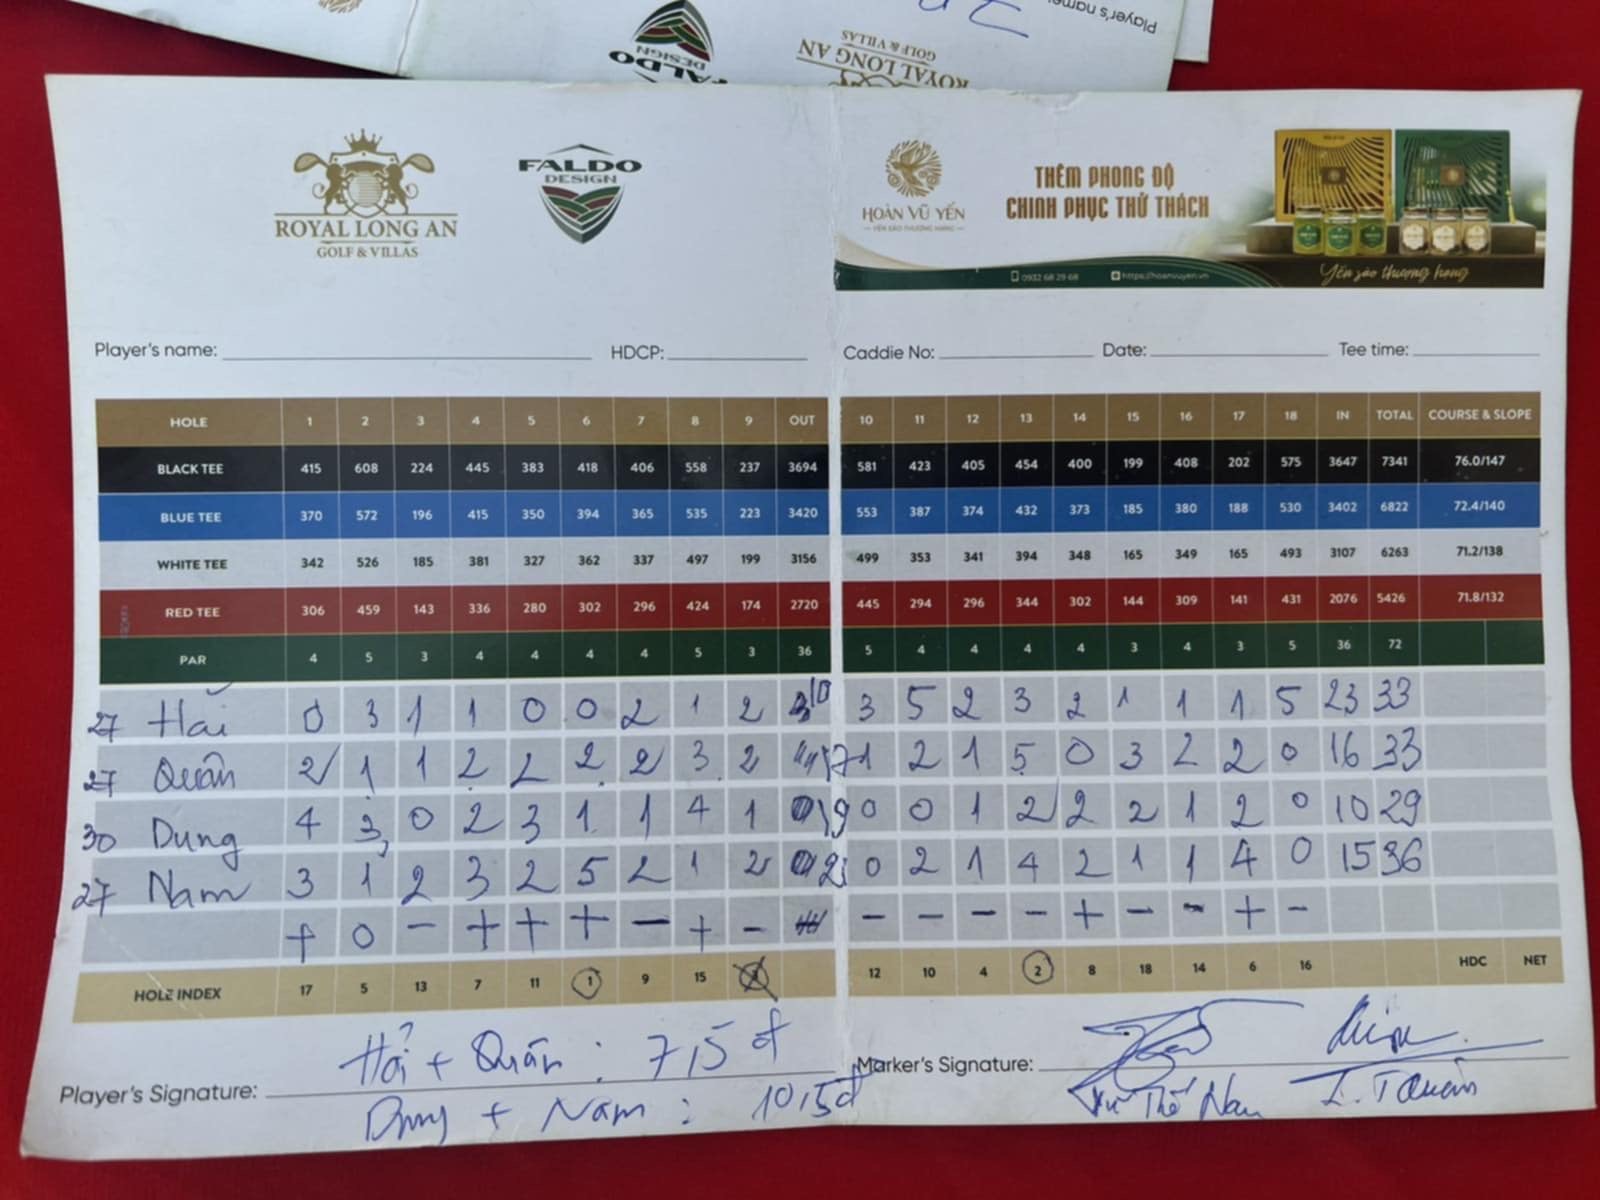 Player's name:
FALDO
DESIGN
ROYAL LONG AN
GOLF & VILLAS
ROYAL LONG AN
GOLF & VILLAS
FALDO
DESIGN
HOÀN VŨ YẾN
YẾN SÀO THƯỢNG HẠNG
THÊM PHONG ĐỘ
CHINH PHỤC THỬ THÁCH
0932 68 29 68 https://hoanvuyen.vn
Yến sào thượng hạng
Player's name: HDCP: Caddie No: Date: Tee time:
HOLE 1 2 3 4 5 6 7 8 9 OUT 10 11 12 13 14 15 16 17 18 IN TOTAL COURSE & SLOPE
BLACK TEE 415 608 224 445 383 418 406 558 237 3694 581 423 405 454 400 199 408 202 575 3647 7341 76.0/147
BLUE TEE 370 572 196 415 350 394 365 535 223 3420 553 387 374 432 373 185 380 188 530 3402 6822 72.4/140
WHITE TEE 342 526 185 381 327 362 337 497 199 3156 499 353 341 394 348 165 349 165 493 3107 6263 71.2/138
RED TEE 306 459 143 336 280 302 296 424 174 2720 445 294 296 344 302 144 309 141 431 2076 5426 71.8/132
PAR 4 5 3 4 4 4 4 5 3 36 5 4 4 4 4 3 4 3 5 36 72
27 Hải 0 3 1 1 0 0 2 1 2 10 3 5 2 3 2 1 1 1 5 23 33
27 Quân 2 1 1 2 2 2 2 3 2 17 1 2 1 5 0 3 2 2 0 16 33
30 Dung 4 3 0 2 3 1 1 4 1 19 0 0 1 2 2 2 1 2 0 10 29
27 Nam 3 1 2 3 2 5 2 1 2 21 0 2 1 4 2 1 1 4 0 15 36
+ 0 - + + + - + - - - - - + - - + -
HOLE INDEX 17 5 13 7 11 1 9 15 3 12 10 4 2 8 18 14 6 16 HDC NET
Hải + Quân : 7,5 đ
Player's Signature: Marker's Signature:
Dung + Nam : 10,5đ Vũ Thế Nam L. T Quân